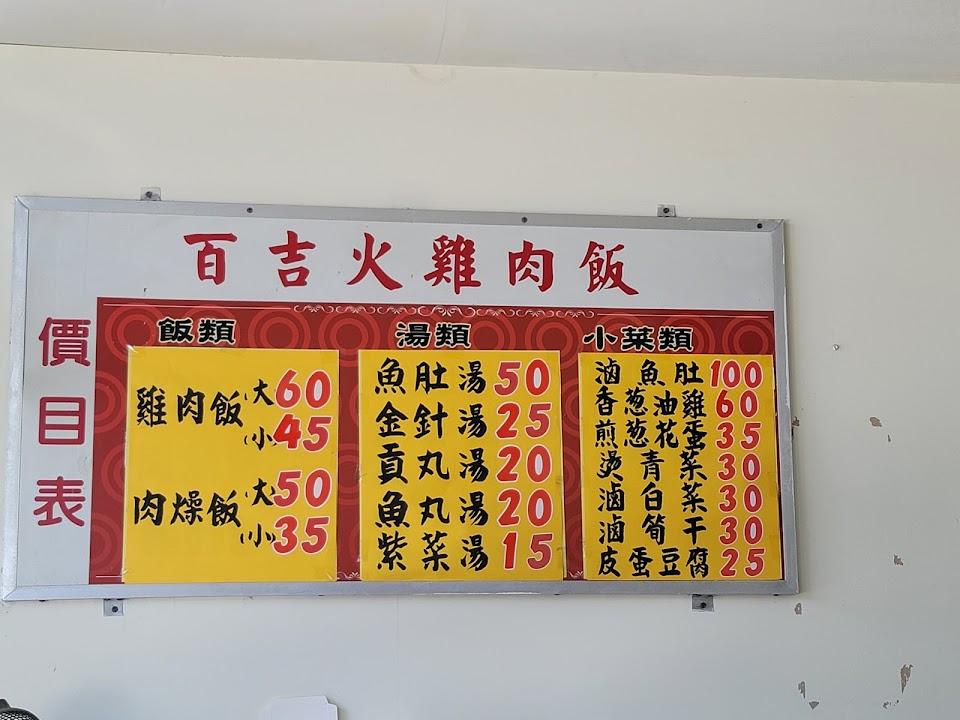 百吉火雞肉飯
價目表
飯類
雞肉飯 大 60
小 45
肉燥飯 大 50
小 35
湯類
魚肚湯 50
金針湯 25
貢丸湯 20
魚丸湯 20
紫菜湯 15
小菜類
滷魚肚 100
香葱油雞 60
煎葱花蛋 35
燙青菜 30
滷白菜 30
滷筍干 30
皮蛋豆腐 25